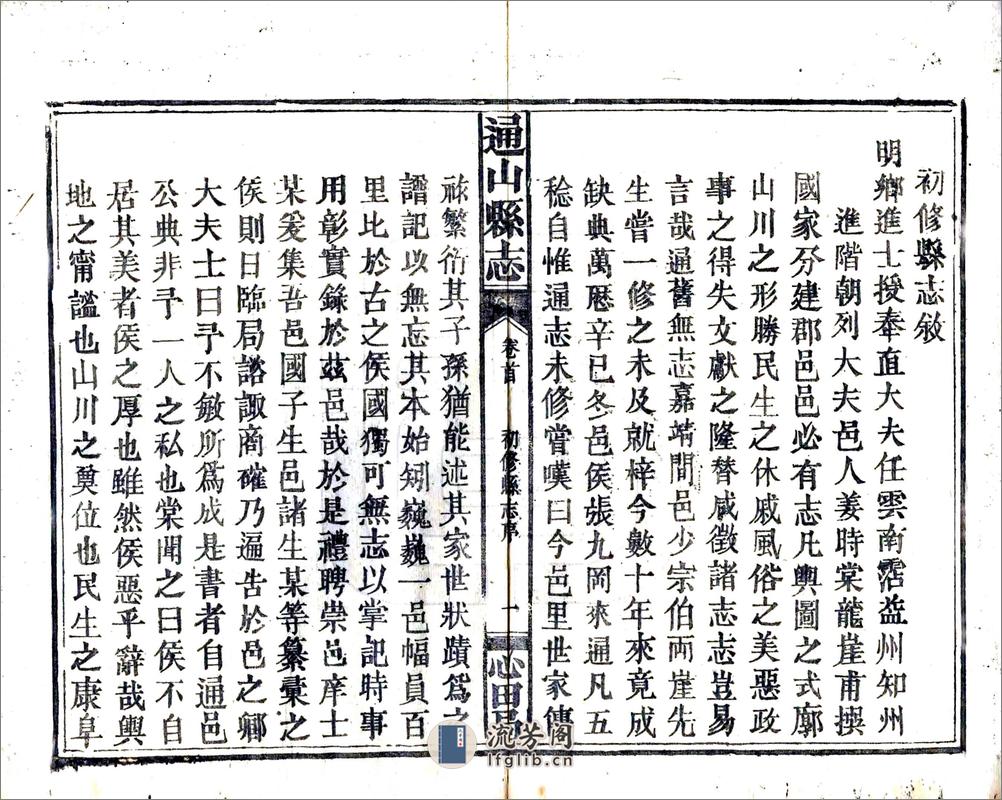 初修縣志敘
明鄉進士授奉直大夫任雲南霑益州知州
進階朝列大夫邑人姜時棠龍崖甫撰
國家分建郡邑邑必有志凡輿圖之式廓
山川之形勝民生之休戚風俗之美惡政
事之得失文獻之隆替咸徵諸志志豈易
言哉通舊無志嘉靖間邑少宗伯兩崖先
生嘗一修之未及就梓今數十年來竟成
缺典萬厯辛巳冬邑侯張九岡來通凡五
稔自惟通志未修嘗嘆曰今邑里世家傳
通山縣志
卷首
初修縣志序
一
心田
祿繁衍其子孫猶能述其家世狀蹟爲之
譜記以無忘其本始矧巍巍一邑幅員百
里比於古之侯國獨可無志以掌記時事
用彰實錄於茲邑哉於是禮聘崇邑庠士
某爰集吾邑國子生邑諸生某等纂彙之
侯則日臨局諮諏商確乃遍告於邑之鄉
大夫士曰予不敏所爲成是書者自通邑
公典非予一人之私也棠聞之曰侯不自
居其美者侯之厚也雖然侯惡乎辭哉輿
地之甯謐也山川之奠位也民生之康阜
流芳阁
lfglib.cn